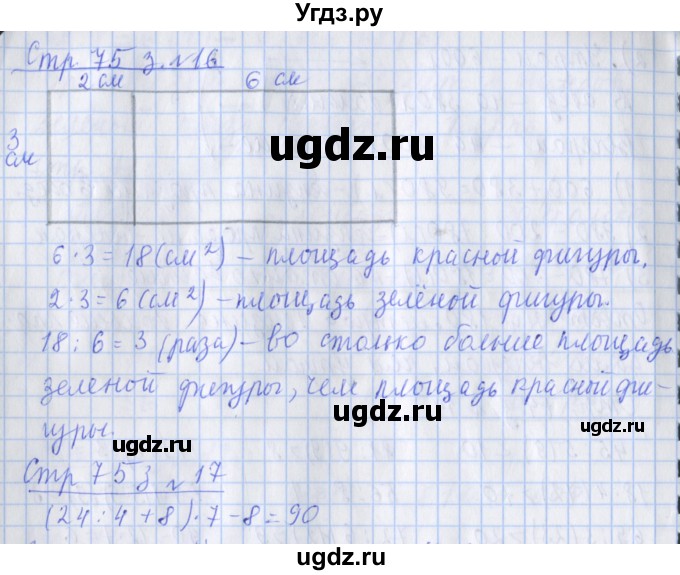 Угдз.ру
Стр. 75 з. №16
2 см 6 см
3 см
ugdz.ru
6 · 3 = 18 (см²) – площадь красной фигуры.
2 · 3 = 6 (см²) – площадь зелёной фигуры.
18 : 6 = 3 (раза) – во столько больше площадь
зеленой фигуры, чем площадь красной фи-
гуры.
ugdz.ru
ugdz.ru
ugdz.ru
Стр 75 з №17
(24 : 4 + 8) · 7 – 8 = 90
ugdz.ru